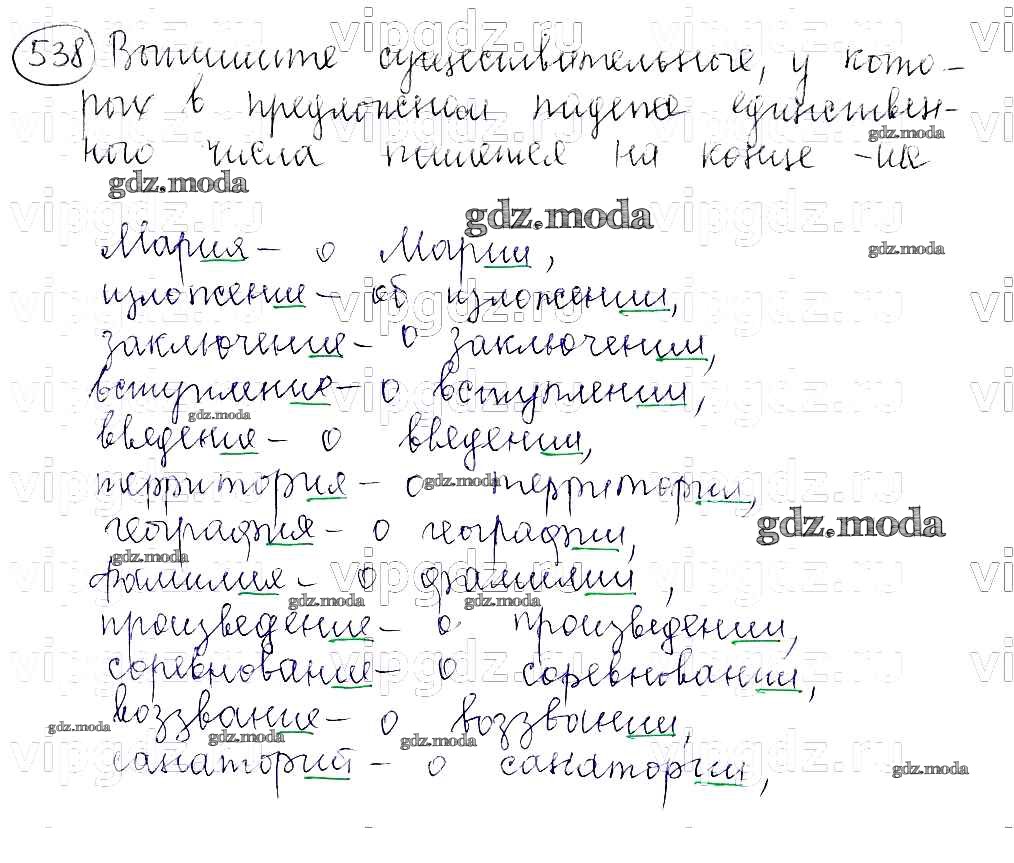 538 Выпишите существительные, у кото-
рых в предложном падеже единствен-
ного числа пишется на конце -ии
gdz.moda
Мария - о Марии,
изложение - об изложении,
заключение - о заключении,
вступление - о вступлении,
введение - о введении,
территория - о территории,
география - о географии,
фамилия - о фамилии,
произведение - о произведении,
соревнование - о соревновании,
воззвание - о воззвании,
санаторий - о санатории,
vipgdz.ru